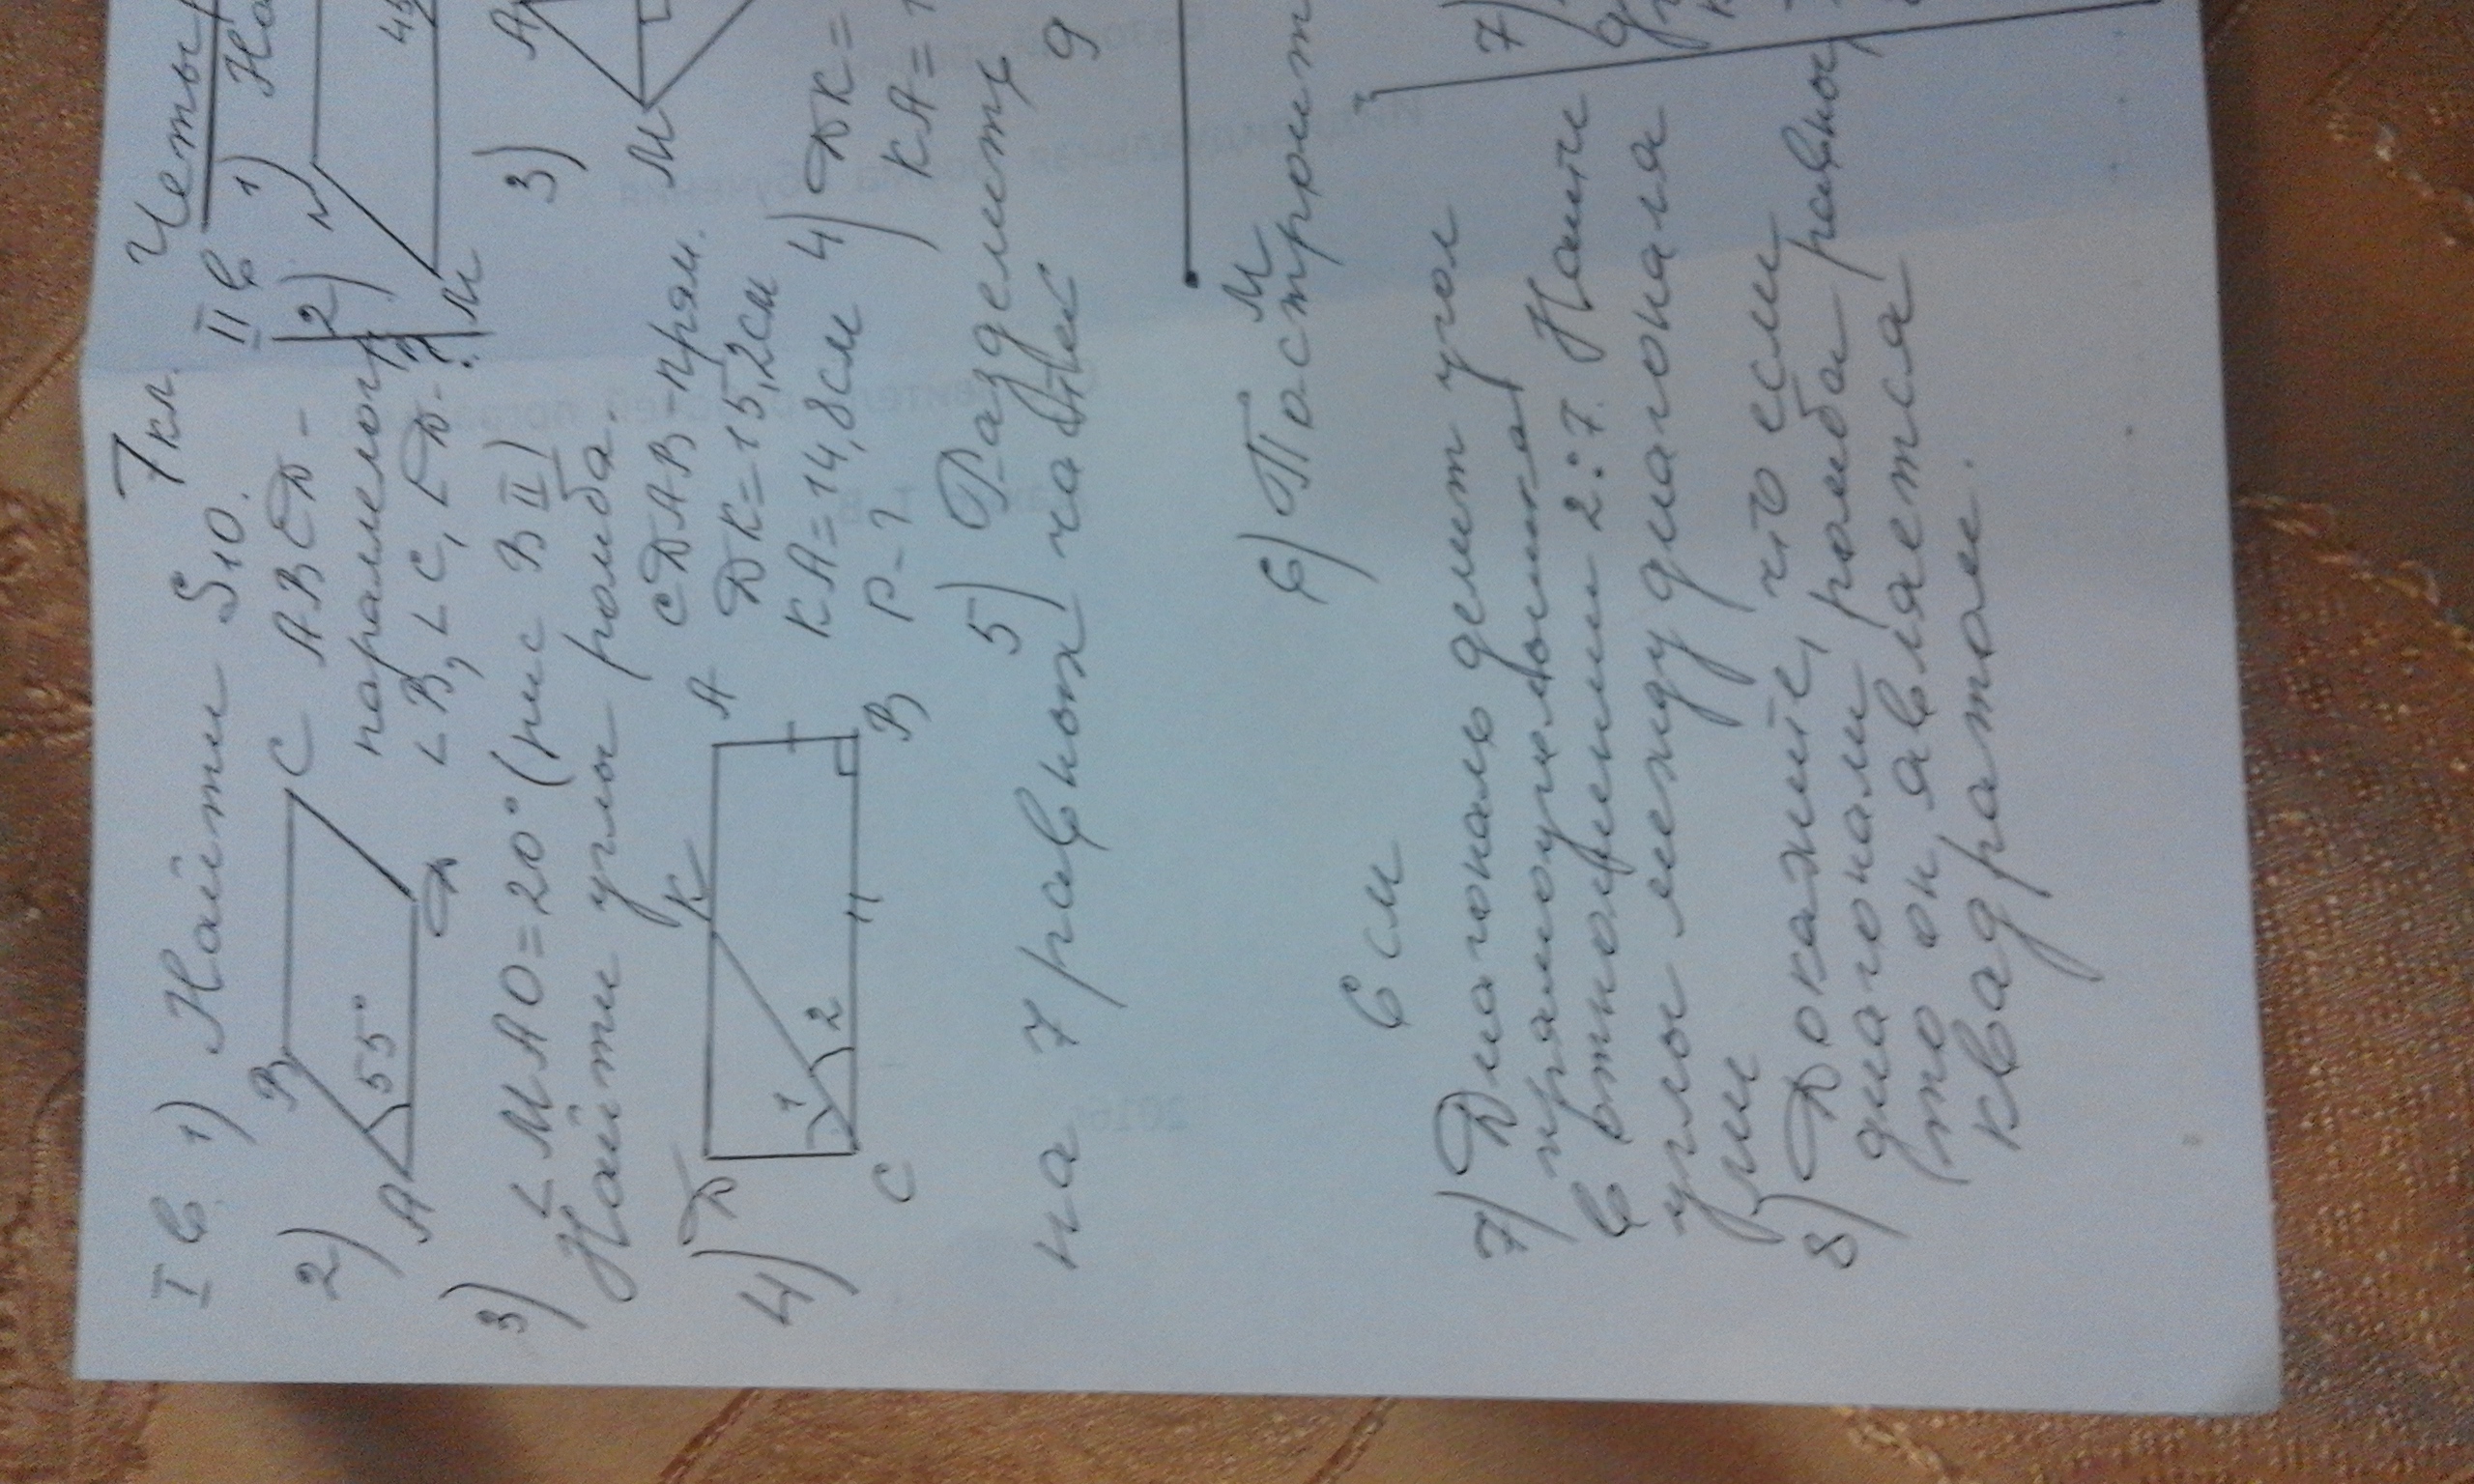 7кл. Четыр
I в. 1) Найти S10.
2) B C
A 55° D
ABCD -
параллелогр
∠B, ∠C, ∠D-?
3) ∠MAO=20° (рис В II)
Найти углы ромба.
4) D K A
C 1 2 B
CDAB-прям.
DK=15,2см
KA=14,8см
P-?
5) Разделить
на 7 равных частей
6) Построит
6 см
7) Диагональ делит угол
прямоугольника
в отношении 2:7. Найти
углы между диагоналя
ми
8) Докажите, что если
диагонали ромба равны,
то он является
квадратом.
II в 1) На
2) N
M 45
3) A
M
4) DK=
KA=1
9
M
7)